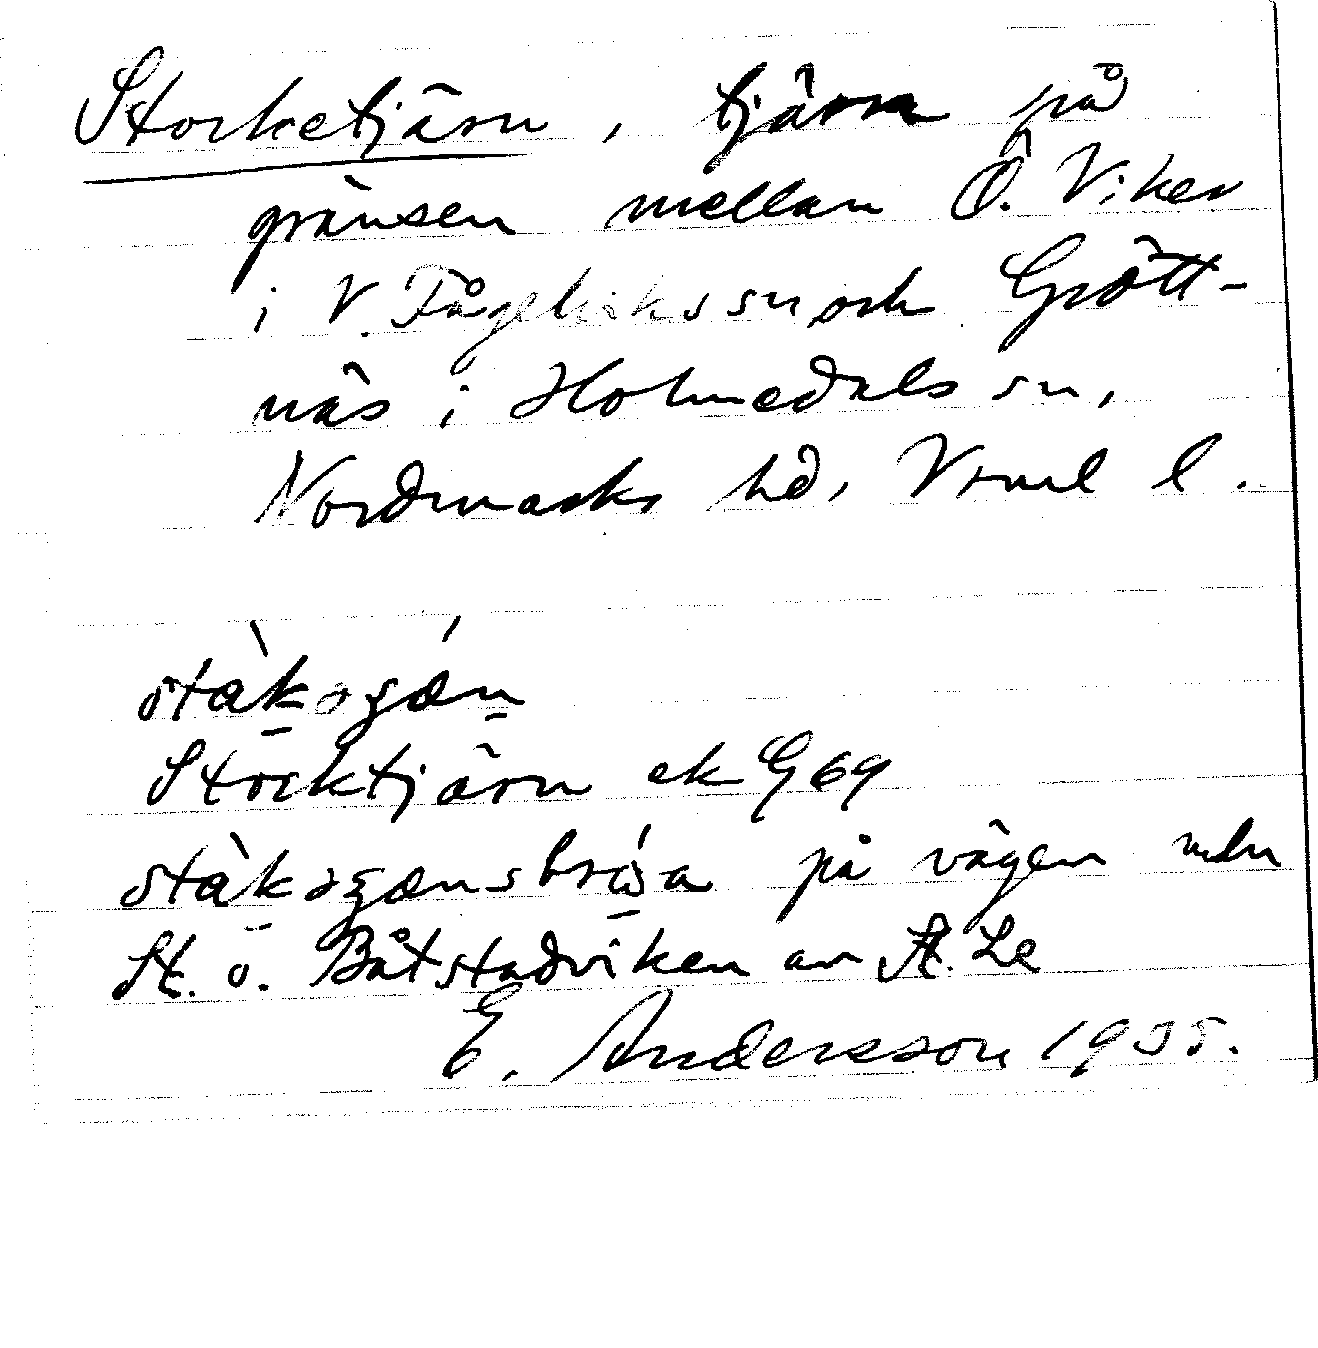 Storketjärn, tjärn på
gränsen mellan Ö. Viker
i V. Fågelviks sn och Grött-
näs i Holmedals sn,
Nordmarks hd, Vrml l.
stàkəgǽn
Stocktjärn ek G 69
stàkəgænsbrǿa på vägen mln
St. o. Båtstadviken av
E. Andersson 1935.